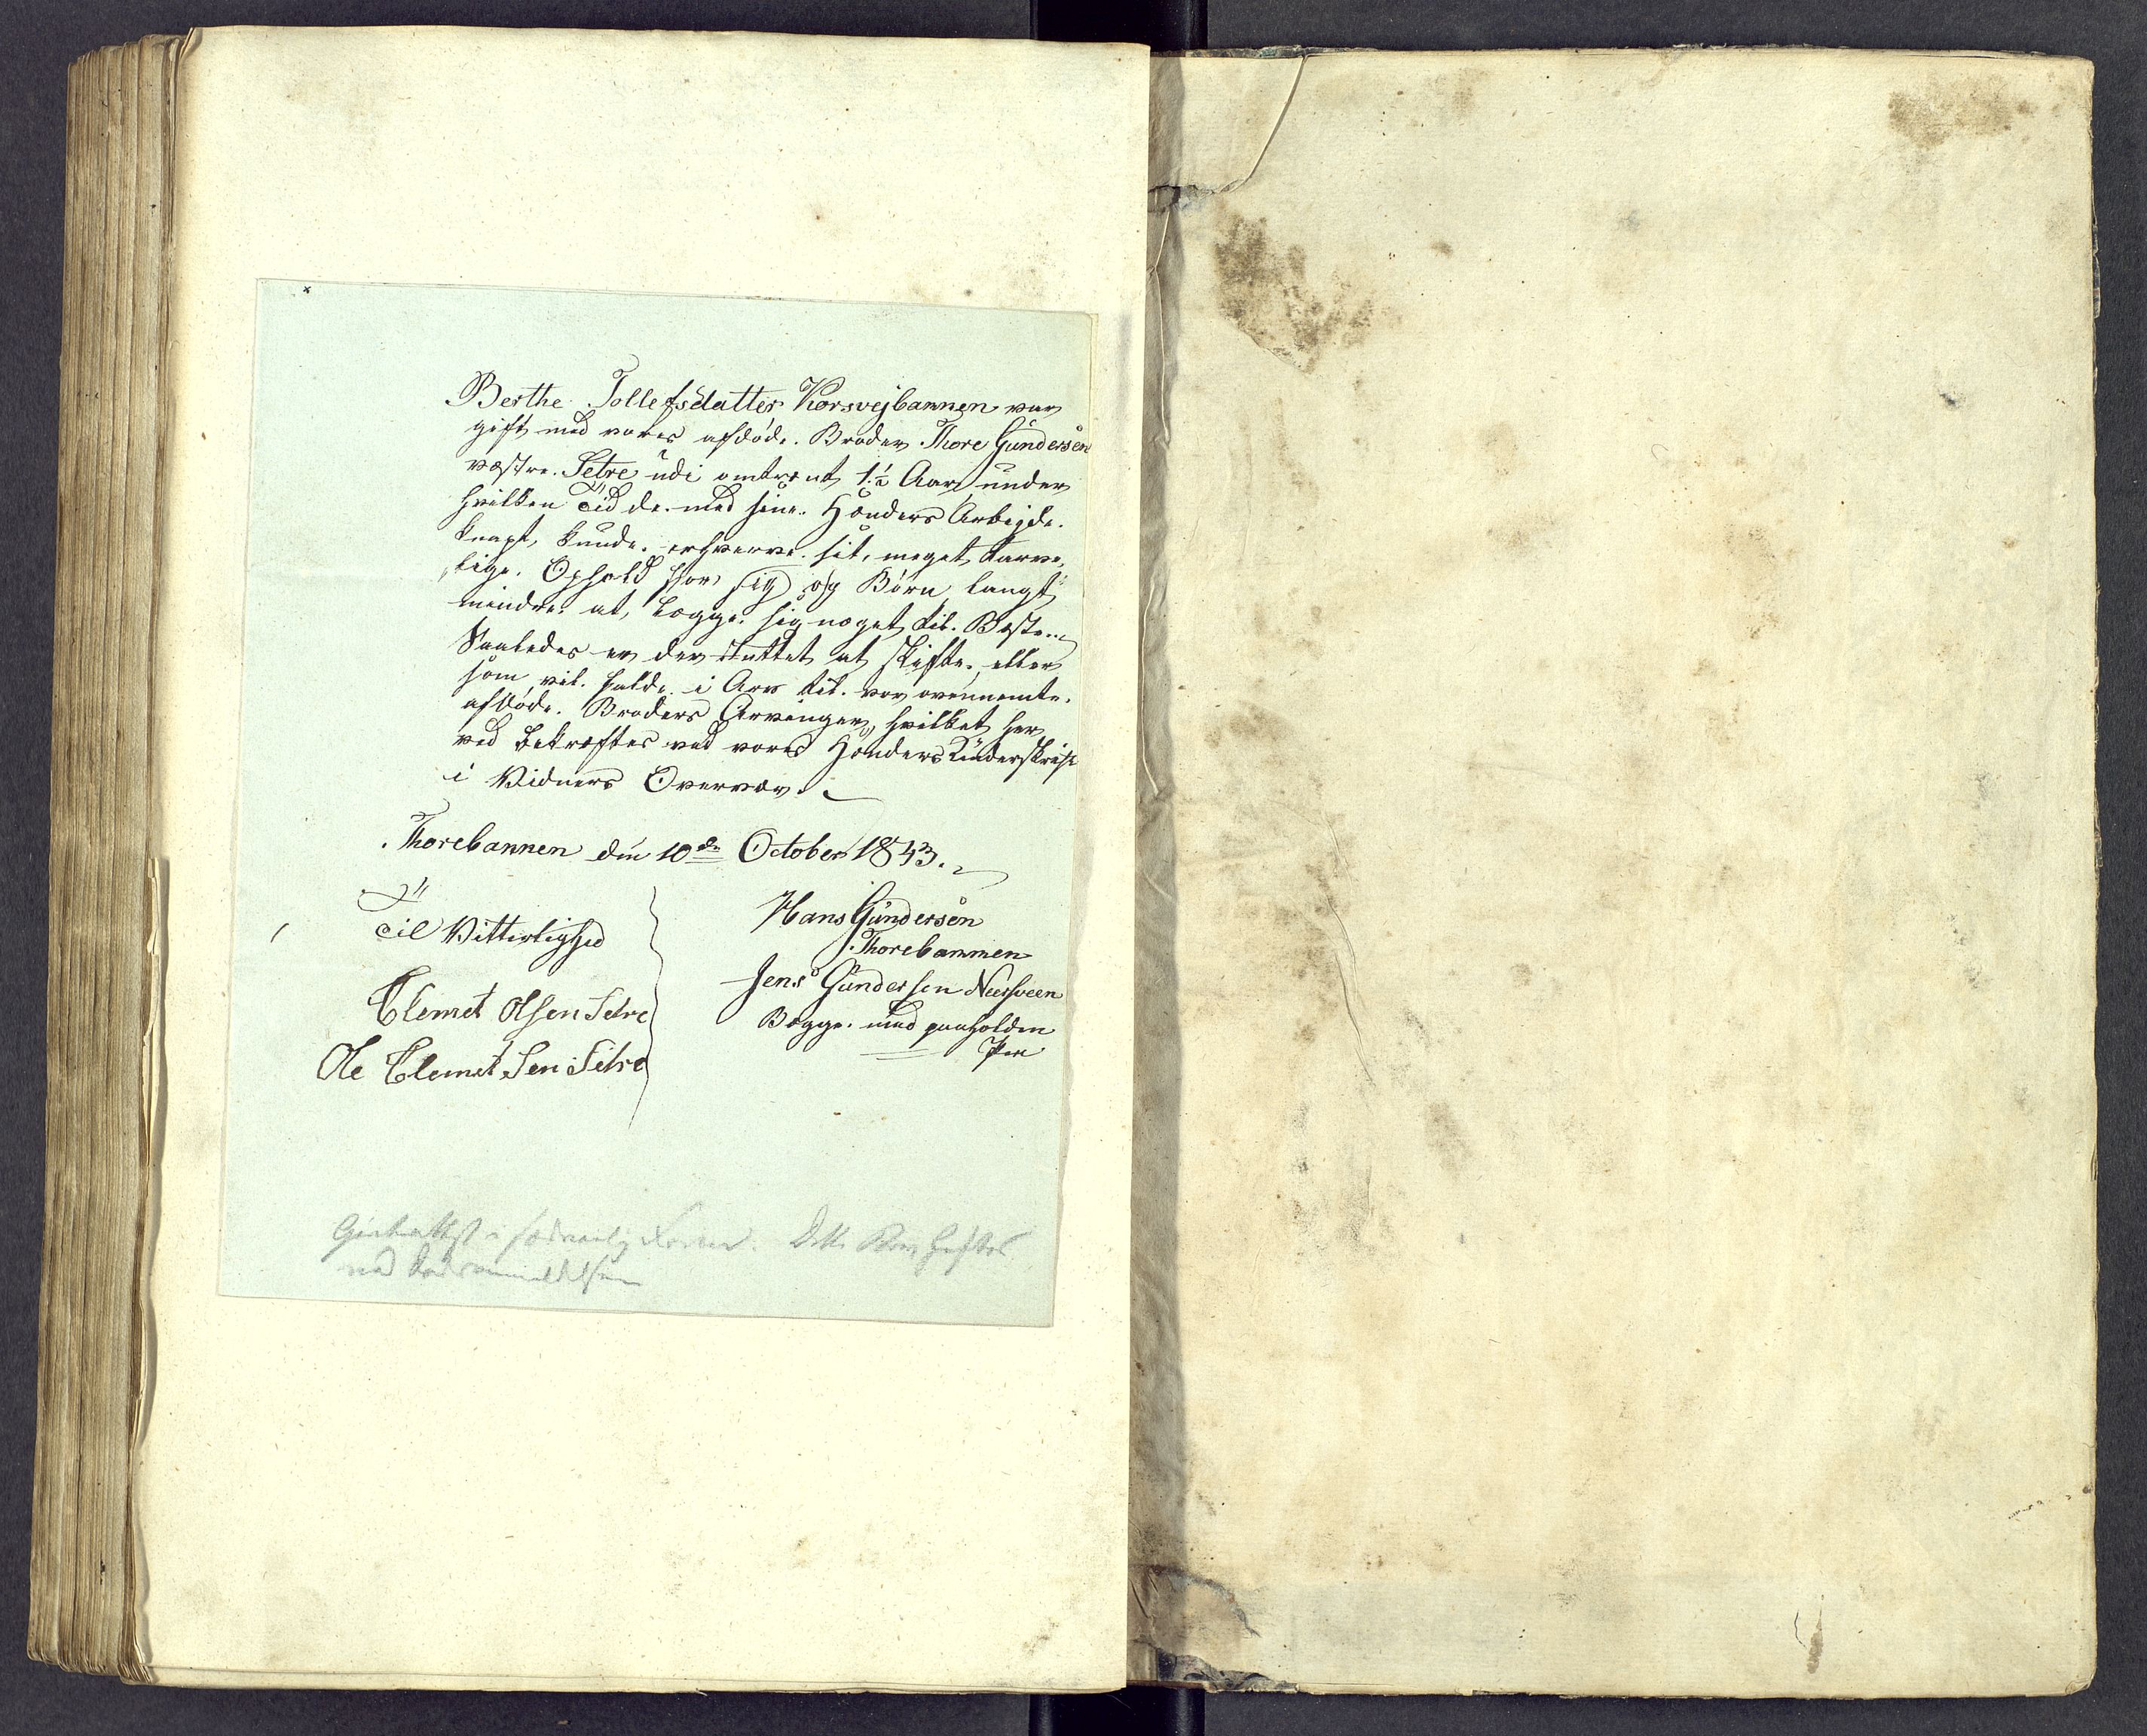 Berthe Tollefsdatter Korsvejbannen var
gift med vores afdöde Broder Thore Gundersen
vestre Setre udi omtrent 1½ Aar, under
hvilken Tid de med sine Hænders Arbejde
knapt kunde erhverve sit meget tarve
lige Ophold for sig og Börn, langt
mindre at lægge sig noget til Beste.
Saaledes er der Intet at skifte, eller
som vil falde i Arv til vor ovennemte
afdöde Broders Arvinger, hvilket her
ved bekræftes ved vores Hænders Underskrift
i Vidners Overvær.
Thorebannen din 10de October 1843.
Til Vitterlighed
Clemet Olsen Setre
Ole Clemet Sen Setre
Hans Gundersen
Thorebannen
Jens Gundersen Neersveen
Begge med paaholden
Pen
i Dette
ved